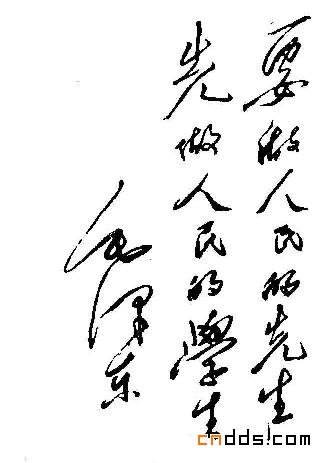 要做人民的先生
先做人民的學生
毛泽东
cndds!com